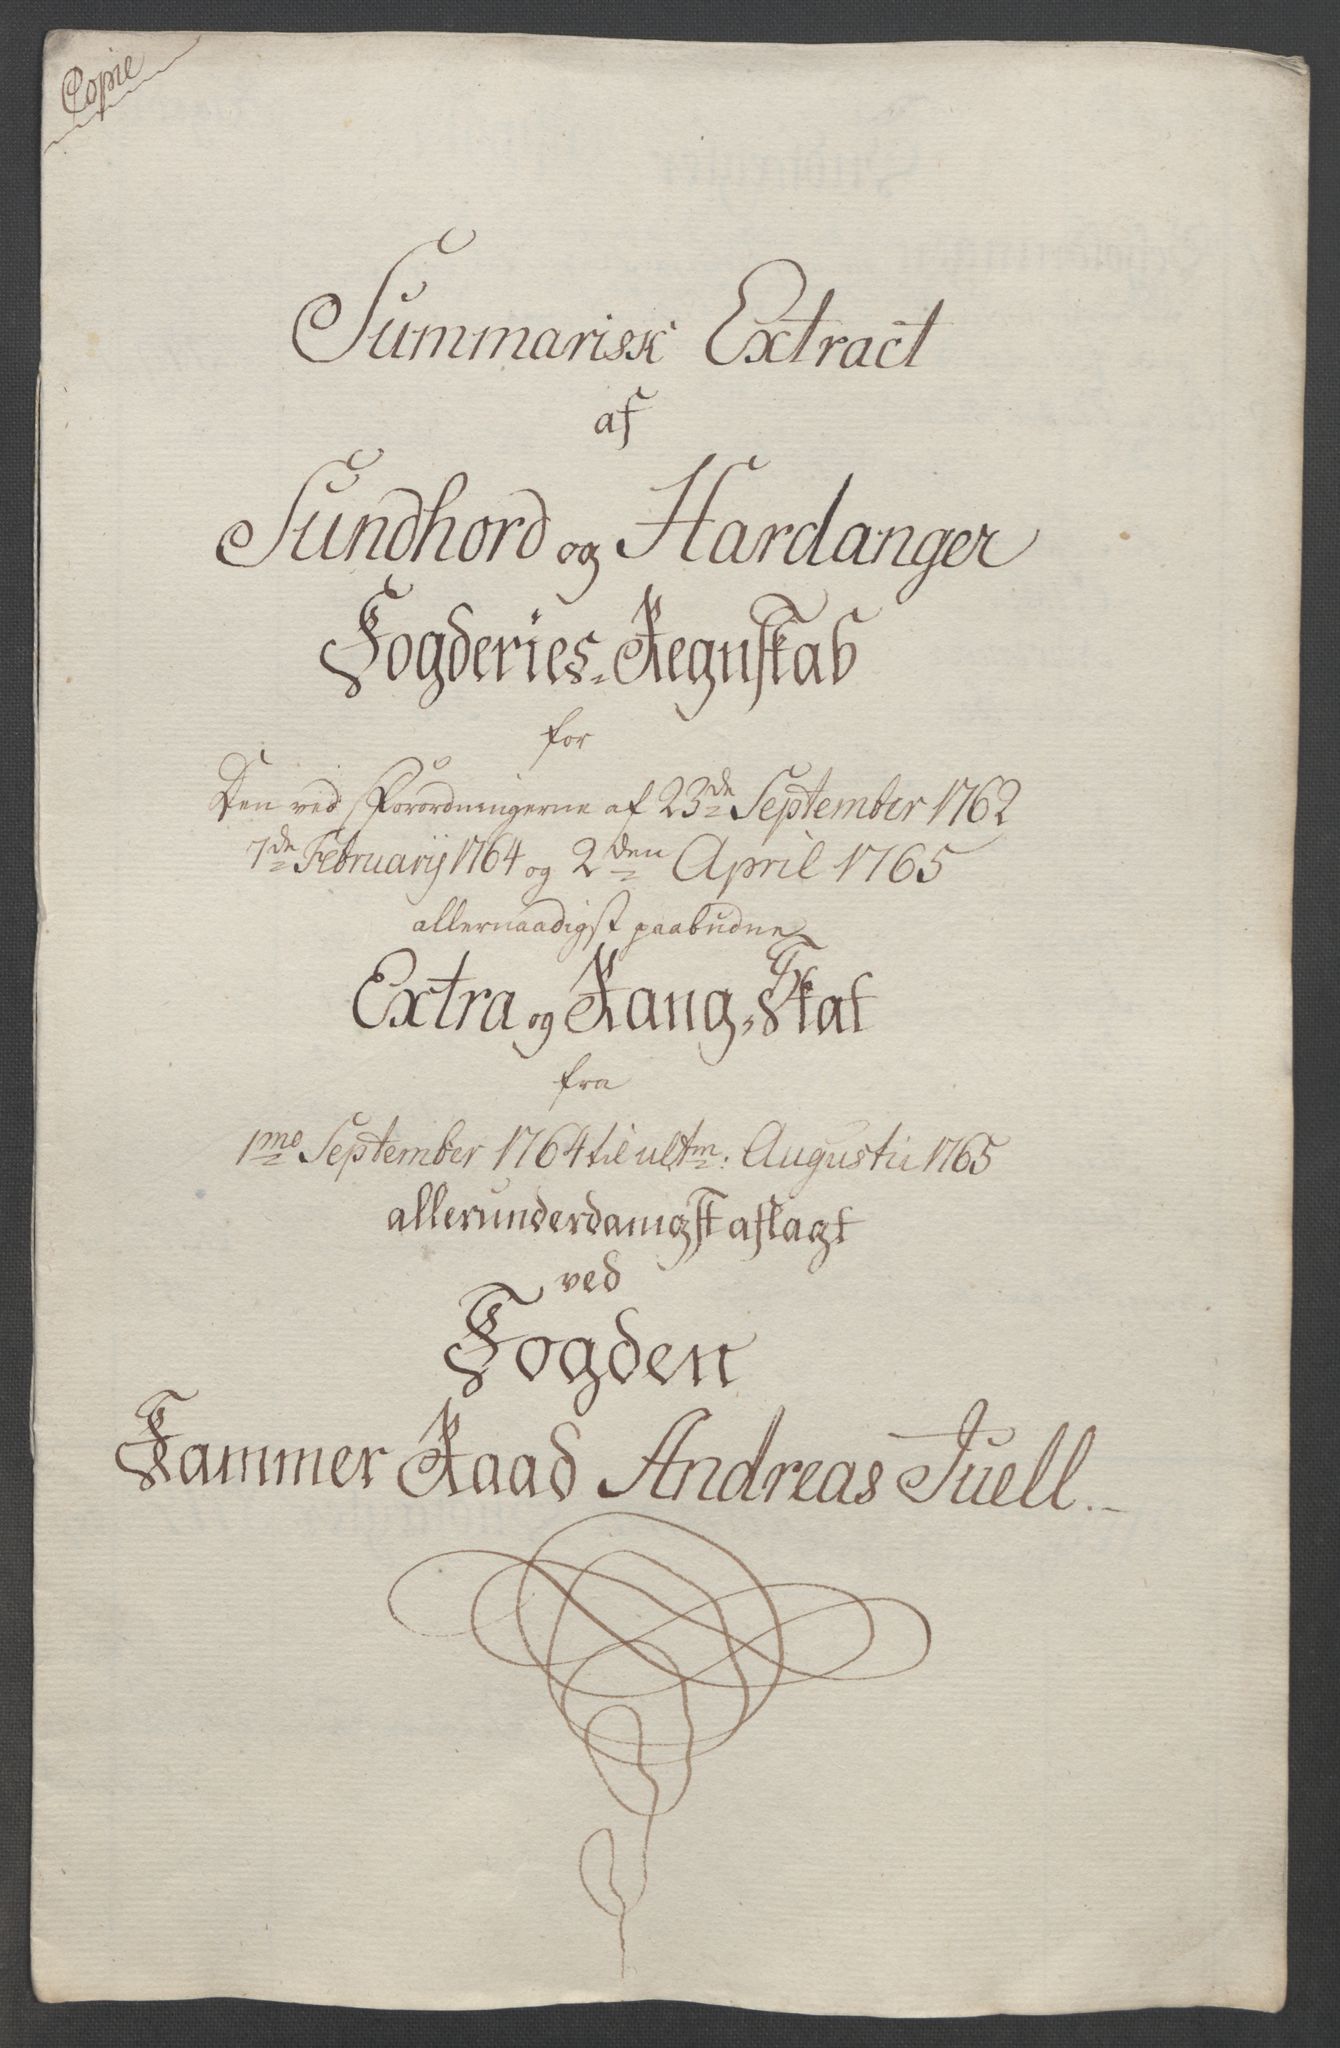 Copie
Summarisk Extract
af
Sundhord og Hardanger
Fogderies-Regnskab
for
Den ved Forordningerne af 23de September 1762
7de Februarij 1764 og 2den April 1765
allernaadigst paabudne
Extra og Rang-Skat
fra
1mo September 1764 til ultm: Augustii 1765
allerunderdanigst aflagt
ved
Fogden
Kammer Raad Andreas Juell